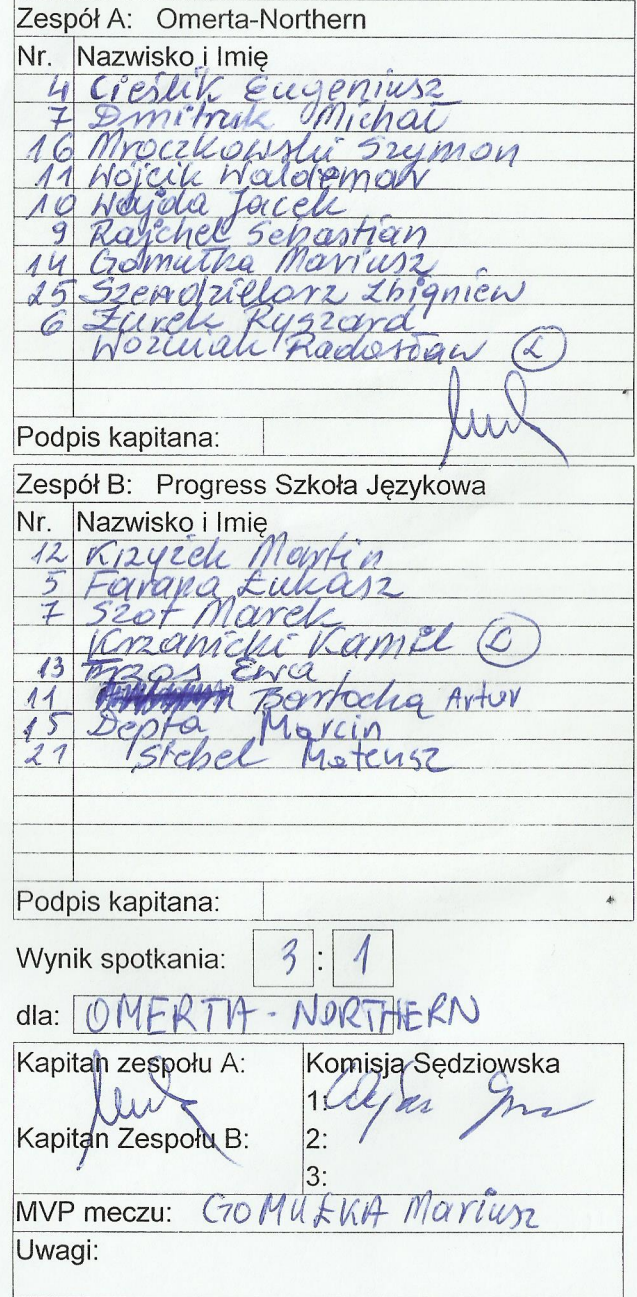 Zespół A: Omerta-Northern
Nr. Nazwisko i Imię
4 Cieślik Eugeniusz
7 Dmitruk Michał
16 Mroczkowski Szymon
11 Wójcik Waldemar
10 Wajda Jacek
9 Rajchel Sebastian
14 Gomułka Mariusz
25 Szendzielorz Zbigniew
6 Żurek Ryszard
Woźniak Radosław L
Podpis kapitana:
Zespół B: Progress Szkoła Językowa
Nr. Nazwisko i Imię
12 Krzyżek Martin
5 Farana Łukasz
7 Szot Marek
Krzanicki Kamil L
13 Trzos Ewa
11 Bartocha Artur
15 Depta Marcin
21 Stebel Mateusz
Podpis kapitana:
Wynik spotkania: 3 : 1
dla: OMERTA - NORTHERN
Kapitan zespołu A: Komisja Sędziowska
1:
Kapitan Zespołu B: 2:
3:
MVP meczu: GOMUŁKA Mariusz
Uwagi: